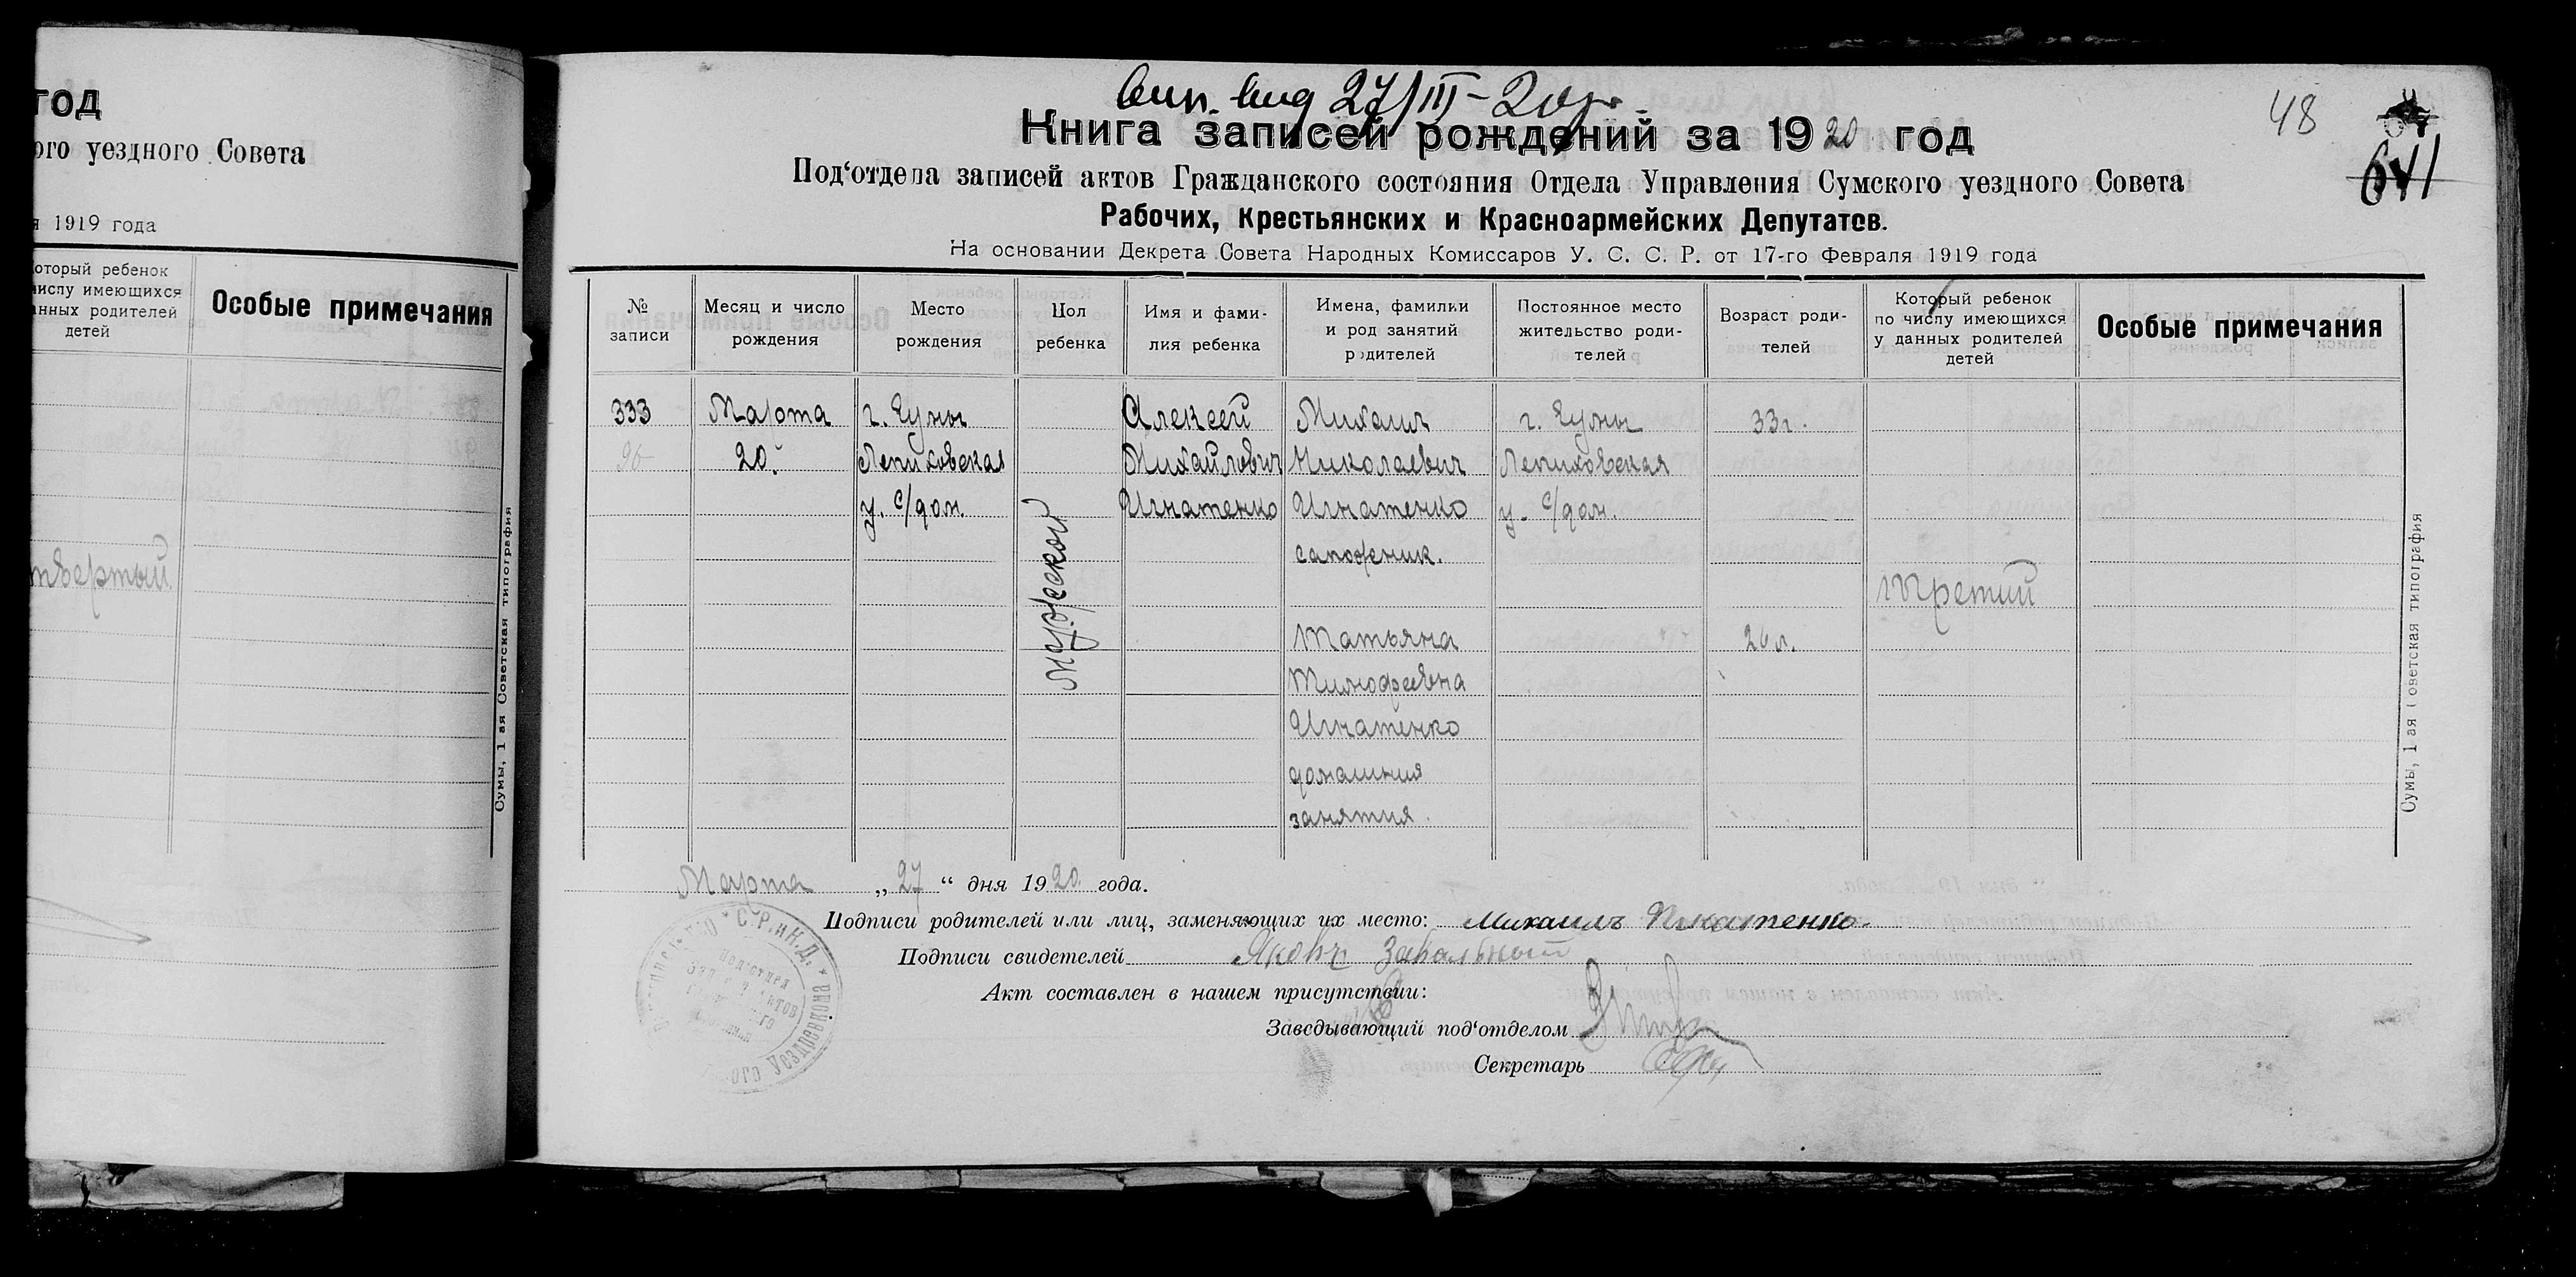 год
ого уездного Совета
я 1919 года
оторый ребенок
числу имеющихся
анных родителей
детей
Особые примечания
твертый
Сумы, 1 ая Советская типография
27/III-20г.
48
641
Книга записей рождений за 1920 год
Под‘отдела записей актов Гражданского состояния Отдела Управления Сумского уездного Совета
Рабочих, Крестьянских и Красноармейских Депутатов.
На основании Декрета Совета Народных Комиссаров У. С. С. Р. от 17-го Февраля 1919 года
№
записи
Месяц и число
рождения
Место
рождения
Пол
ребенка
Имя и фами-
лия ребенка
Имена, фамилии
и род занятий
родителей
Постоянное место
жительство роди-
телей
Возраст роди-
телей
Который ребенок
по числу имеющихся
у данных родителей
детей
Особые примечания
333 Марта г. Сумы Алексей Михаил г. Сумы 33г.
20. Лепиховская Михайлович Николаевич Лепиховская
у. с/дом. Игнатенко Игнатенко у. с/дом.
сапожник.
мужеской
третий
Татьяна 26 л.
Тимофеевна
Игнатенко
домашния
занятия.
Сумы, 1 ая Советская типография
Марта „27“ дня 1920 года.
Подписи родителей или лиц, заменяющих их место: Михаилъ Игнатенко.
Подписи свидетелей Яковъ
Акт составлен в нашем присутствии:
Заведывающий под‘отделом
Секретарь